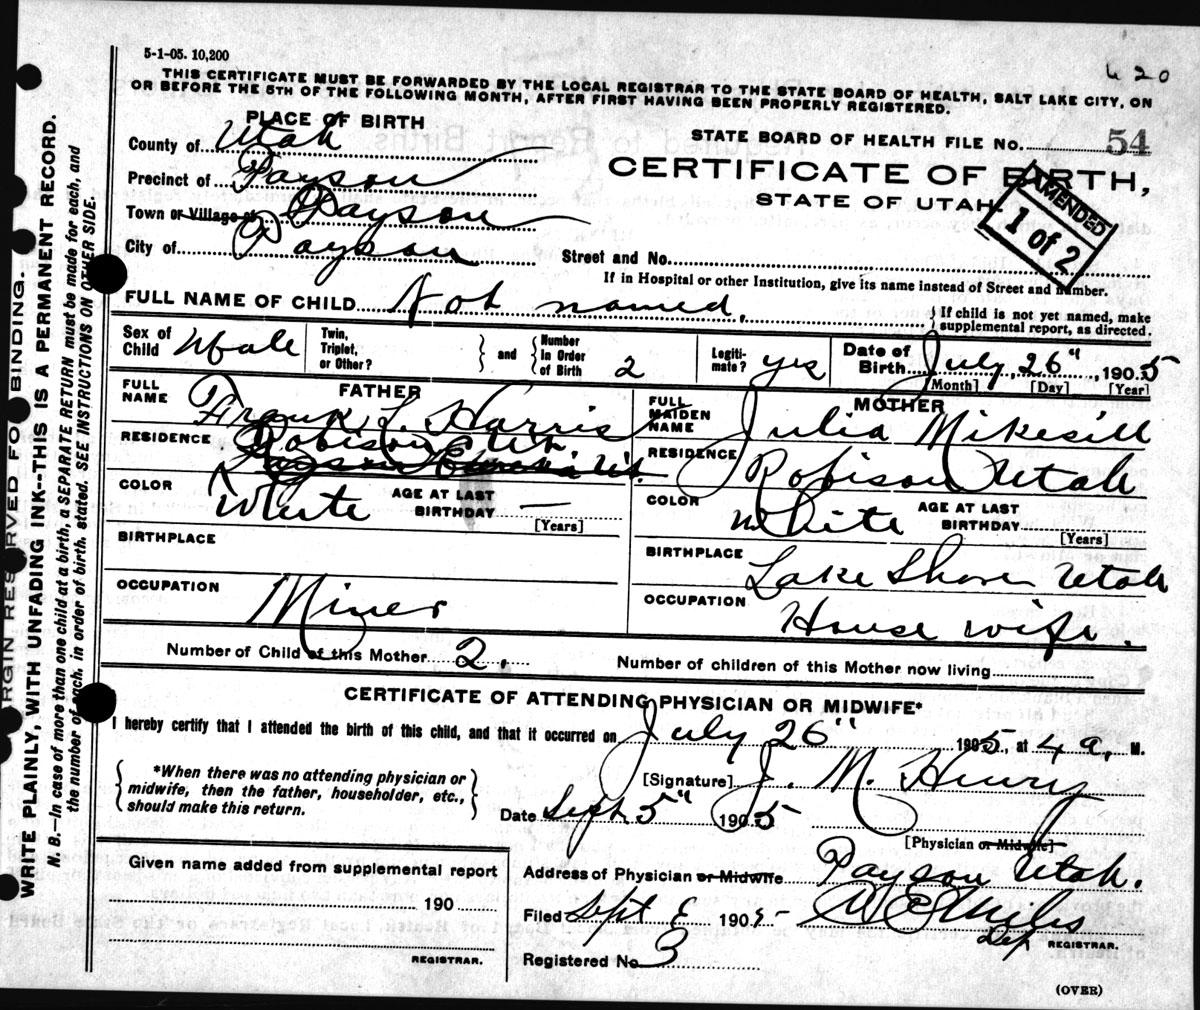 5-1-05. 10,200
420
THIS CERTIFICATE MUST BE FORWARDED BY THE LOCAL REGISTRAR TO THE STATE BOARD OF HEALTH, SALT LAKE CITY, ON
OR BEFORE THE 5TH OF THE FOLLOWING MONTH, AFTER FIRST HAVING BEEN PROPERLY REGISTERED.
PLACE OF BIRTH
County of Utah
Precinct of Payson
Town or Village of Payson
City of Payson
STATE BOARD OF HEALTH FILE NO. 54
CERTIFICATE OF BIRTH,
STATE OF UTAH
AMENDED
1 of 2
Street and No.
If in Hospital or other Institution, give its name instead of Street and number.
FULL NAME OF CHILD Not named.
If child is not yet named, make
supplemental report, as directed.
Sex of Child Male
Twin, Triplet, or Other?
and
Number In Order of Birth 2
Legiti-mate? yes
Date of Birth July, 26", 1905
[Month] [Day] [Year]
FATHER
FULL NAME Frank L. Harris
RESIDENCE Robison Ut.
COLOR White
AGE AT LAST BIRTHDAY —
[Years]
BIRTHPLACE
OCCUPATION Miner
MOTHER
FULL MAIDEN NAME Julia Mikesill
RESIDENCE Robison Utah
COLOR White
AGE AT LAST BIRTHDAY
[Years]
BIRTHPLACE Lake Shore Utah
OCCUPATION House wife.
Number of Child of this Mother 2.
Number of children of this Mother now living
CERTIFICATE OF ATTENDING PHYSICIAN OR MIDWIFE*
I hereby certify that I attended the birth of this child, and that it occurred on July 26" 1905, at 4 a, M.
*When there was no attending physician or
midwife, then the father, householder, etc.,
should make this return.
[Signature] J. M. Henry
Date Sept 5" 1905
[Physician or Midwife]
Given name added from supplemental report
190
REGISTRAR.
Address of Physician or Midwife Payson Utah.
Filed Sept 1905
Dep REGISTRAR.
Registered No 3
(OVER)
MARGIN RESERVED FOR BINDING.
WRITE PLAINLY, WITH UNFADING INK--THIS IS A PERMANENT RECORD.
N. B.—In case of more than one child at a birth, a SEPARATE RETURN must be made for each, and
the number of each, in order of birth, stated. SEE INSTRUCTIONS ON OTHER SIDE.